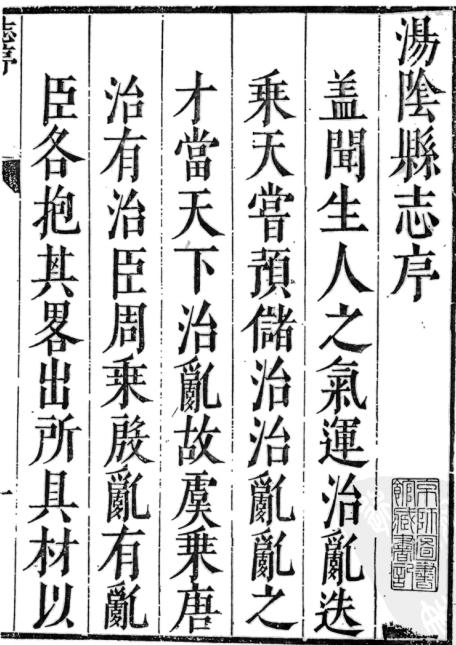 湯陰縣志序
蓋聞生人之氣運治亂迭
乘天嘗預儲治治亂亂之
才當天下治亂故虞乘唐
治有治臣周乘殷亂有亂
臣各抱其畧出所具材以
志序
一
京師圖書
館藏書記